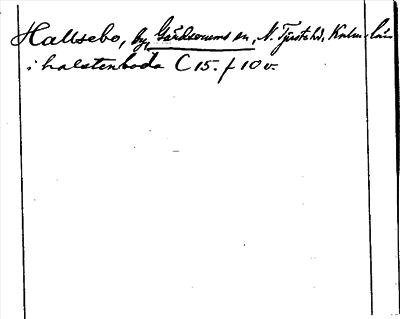 Hallsebo, by, Gärdserums sn, N. Tjusts hd, Kalm. län
i halstenboda C 15. f 10 v.